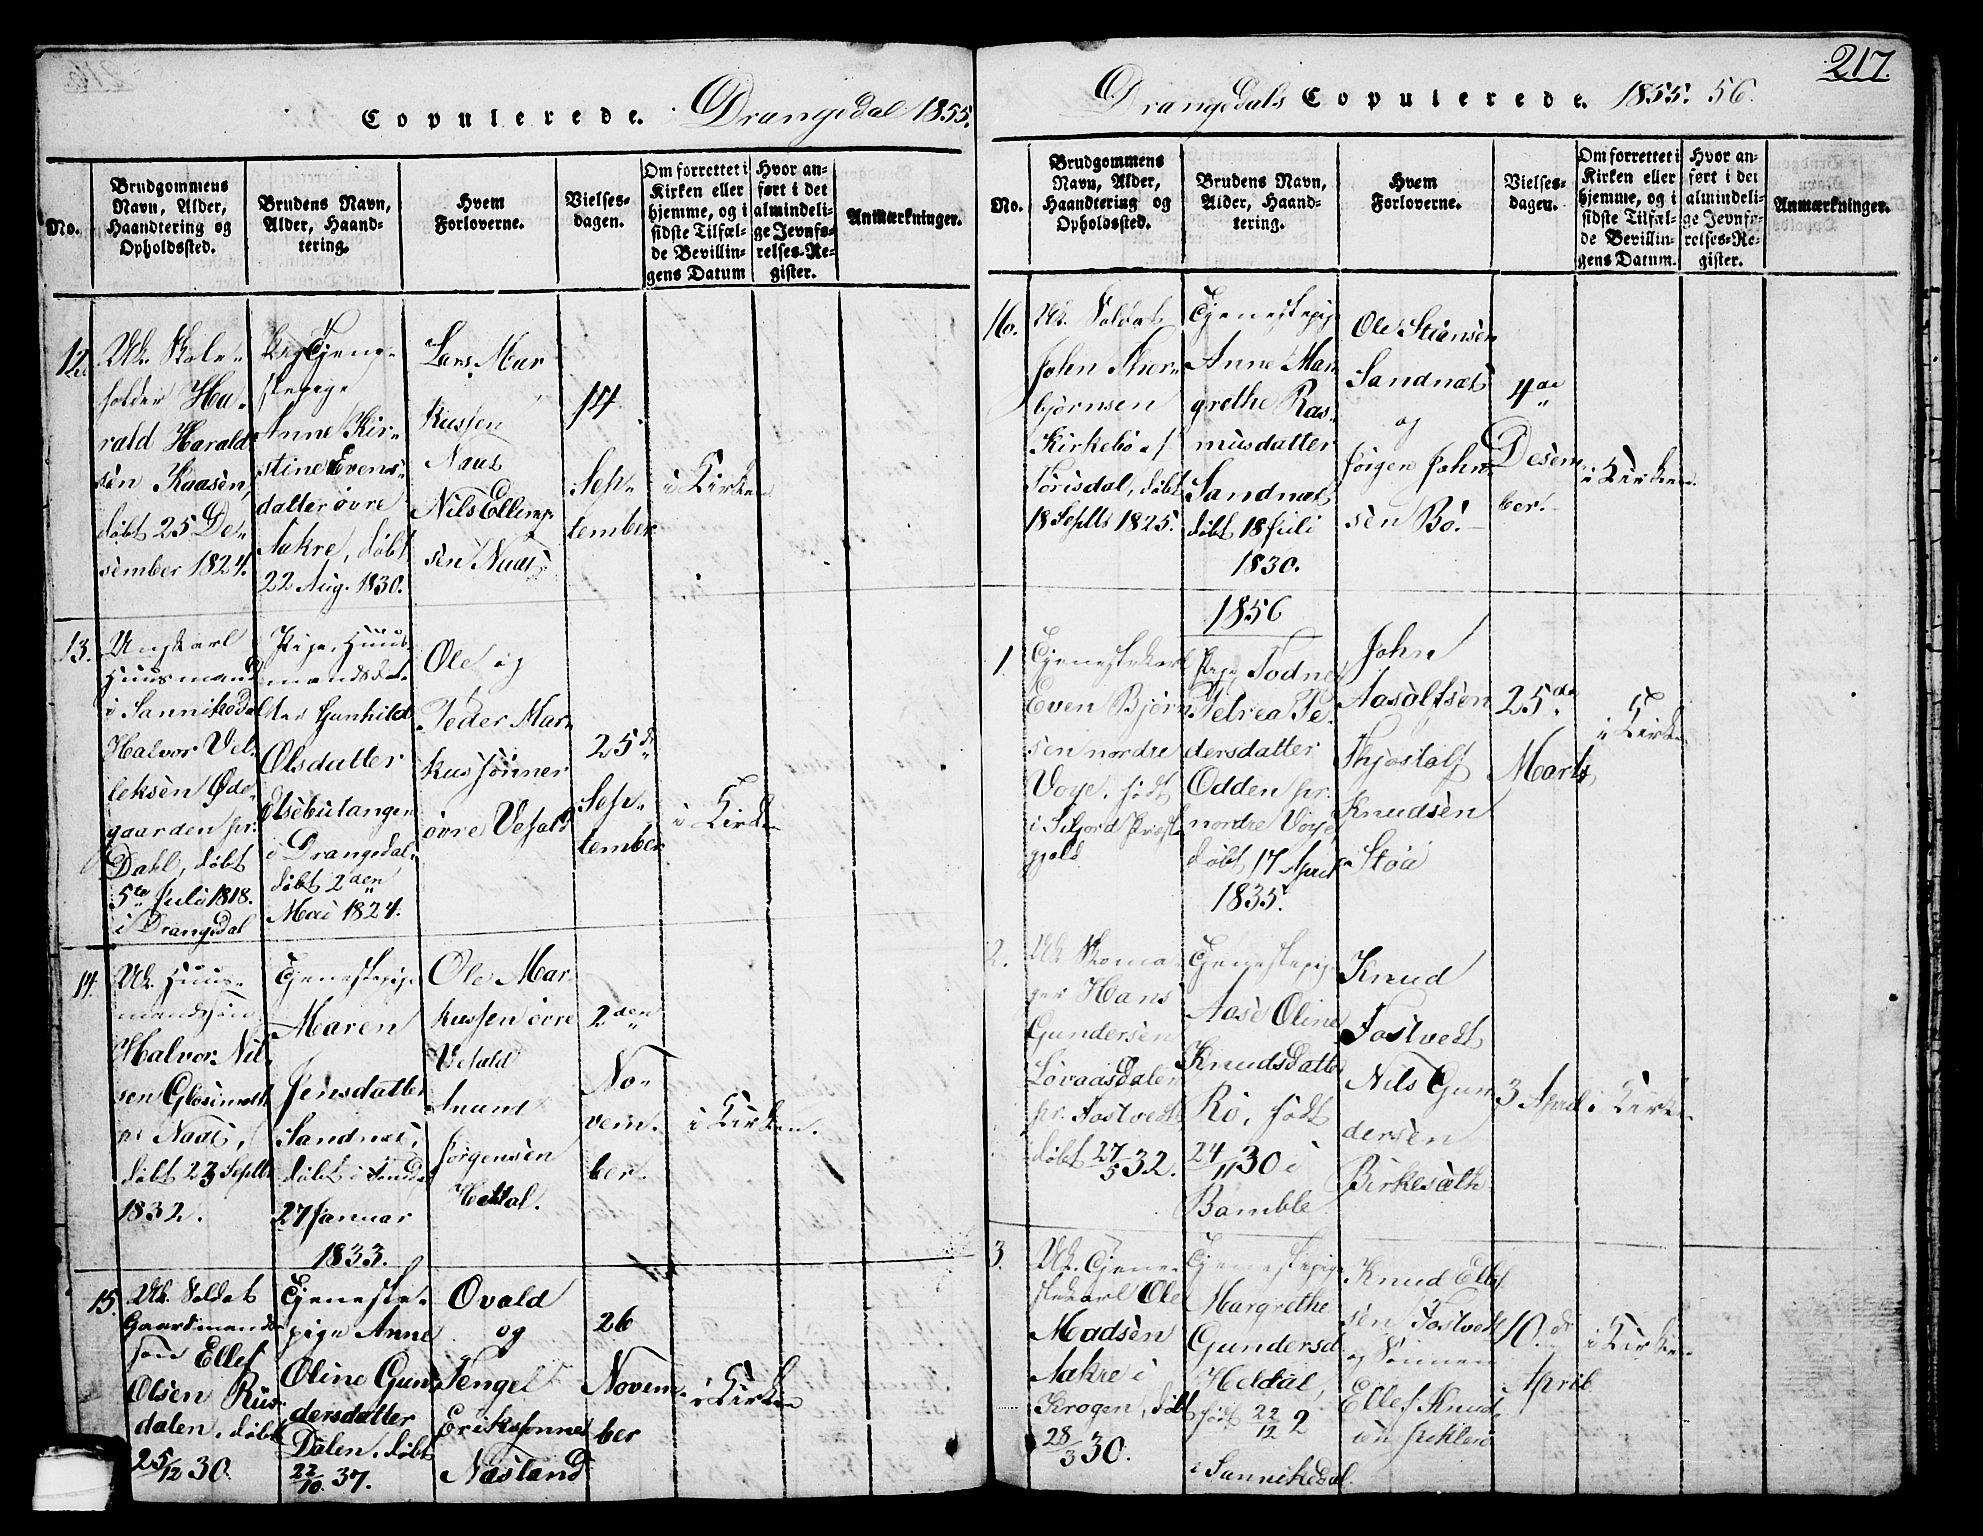 Copulerede. Drangedal 1855.
No.
Brudgommens
Navn, Alder,
Haandtering og
Opholdssted.
Brudens Navn,
Alder, Haand-
tering.
Hvem
Forloverne.
Vielses-
dagen.
Om forrettet i
Kirken eller
hjemme, og i
sidste Tilfæl-
de Bevillin-
gens Datum
Hvor an-
ført i det
almindeli-
ge Jevnfø-
relses-Re-
gister.
Anmærkninger.
12.
Uk. Skole-
holder Ha-
rald Harald-
sen Kaasen,
døbt 25 De-
sember 1824.
Pige Tjene-
stepige
Anne Kir-
stine Evens-
datter øvre
Aakre, døbt
22 Aug. 1830.
Lars Mar
kussen
Naas
Nils
sen Naas
14
Sep-
tember
i Kirken
13.
Ungkarl
Huusmand
i Sannikedal
Halvor Vel-
leksen Øde-
gaarden pr.
Dahl, døbt
5te Juli 1818.
i Drangedal
Pige, Huus-
mandsdat-
ter Gunhild
Olsdatter
i Drangedal.
døbt 2den
Mai 1824.
Ole og
Peder Mar-
kussønner
øvre Vefald
25de
Sep-
tember
i Kirken
14.
Uk. Huus-
mandssøn
Halvor Nil-
sen
pr Naas,
døbt 23 Septbr
1832.
Tjenestepige
Maren
Jensdatter
Sandnæs,
døbt i
27 Januar
1833.
Ole Mar
kussen øvre
Vefald
Anund
Jørgensen
Heldal.
2den
No-
vem-
ber.
i Kirken.
15.
Uk. Soldat
Gaardmands-
søn Ellef
Olsen Rus-
dalen, døbt
25/12 30.
Tjeneste-
pige Anne
Oline Gun
dersdatter
Dalen, døbt
22/10 37.
Ovald
og
Tengel
Eriksønner
Næsland
26
Novem-
ber
i Kirken
217.
Drangedals Copulerede. 1855. 56.
No.
Brudgommens
Navn, Alder,
Haandtering og
Opholdssted.
Brudens Navn,
Alder, Haand-
tering.
Hvem
Forloverne.
Vielses-
dagen.
Om forrettet i
Kirken eller
hjemme, og i
sidste Tilfæl-
de Bevillin-
gens Datum.
Hvor an-
ført i det
almindeli-
ge Jevnfø-
relses-Re-
gister.
Anmærkninger.
16.
Uk. Soldat
John Thor-
bjørnsen
Kirkebø af
Tørisdal, døbt
18 Septb 1825.
Tjenestepige
Anne Mar
grethe Ras-
musdatter
Sandnæs
døbt 18 Juli
1830.
Ole Stiansen
Sandnæs
og
Jørgen John-
sen Bø.
4de
Desem
ber.
i Kirken.
1856
1.
Tjenestekarl
Even Bjørn
sen nordre
Voje, født
i Siljord Præst
gjeld
Pige Todne
Petrea Pe-
dersdatter
Odden pr.
nordre Voje
døbt, 17 April
1835.
John
Aasolfsen
Thjostolf
Knudsen
Støa
25de
Marts
i Kirken
2.
Uk Skoma
ger Hans
Gundersen
Løvaasdalen
pr. Tostvedt
døbt 27/5 32.
Tjenestepige
Aase Oline
Knudsdatter
Rø, født
24/11 30 i
Bamble
Knud
Tostvedt
Nils Gun
dersen
Birkesæth
3 April
i Kirken
3.
Uk. Tjene-
stekarl Ole
Madsen
Aakre i
Krogen, døbt
28/3 30.
Tjenestepige
Margrethe
Gundersd
Heldal,
født 22/12 2
i Sannikedal
Knud Ellef
sen Tostvedt
og Sønnen
Ellef Knud
10. de
April
i Kirken